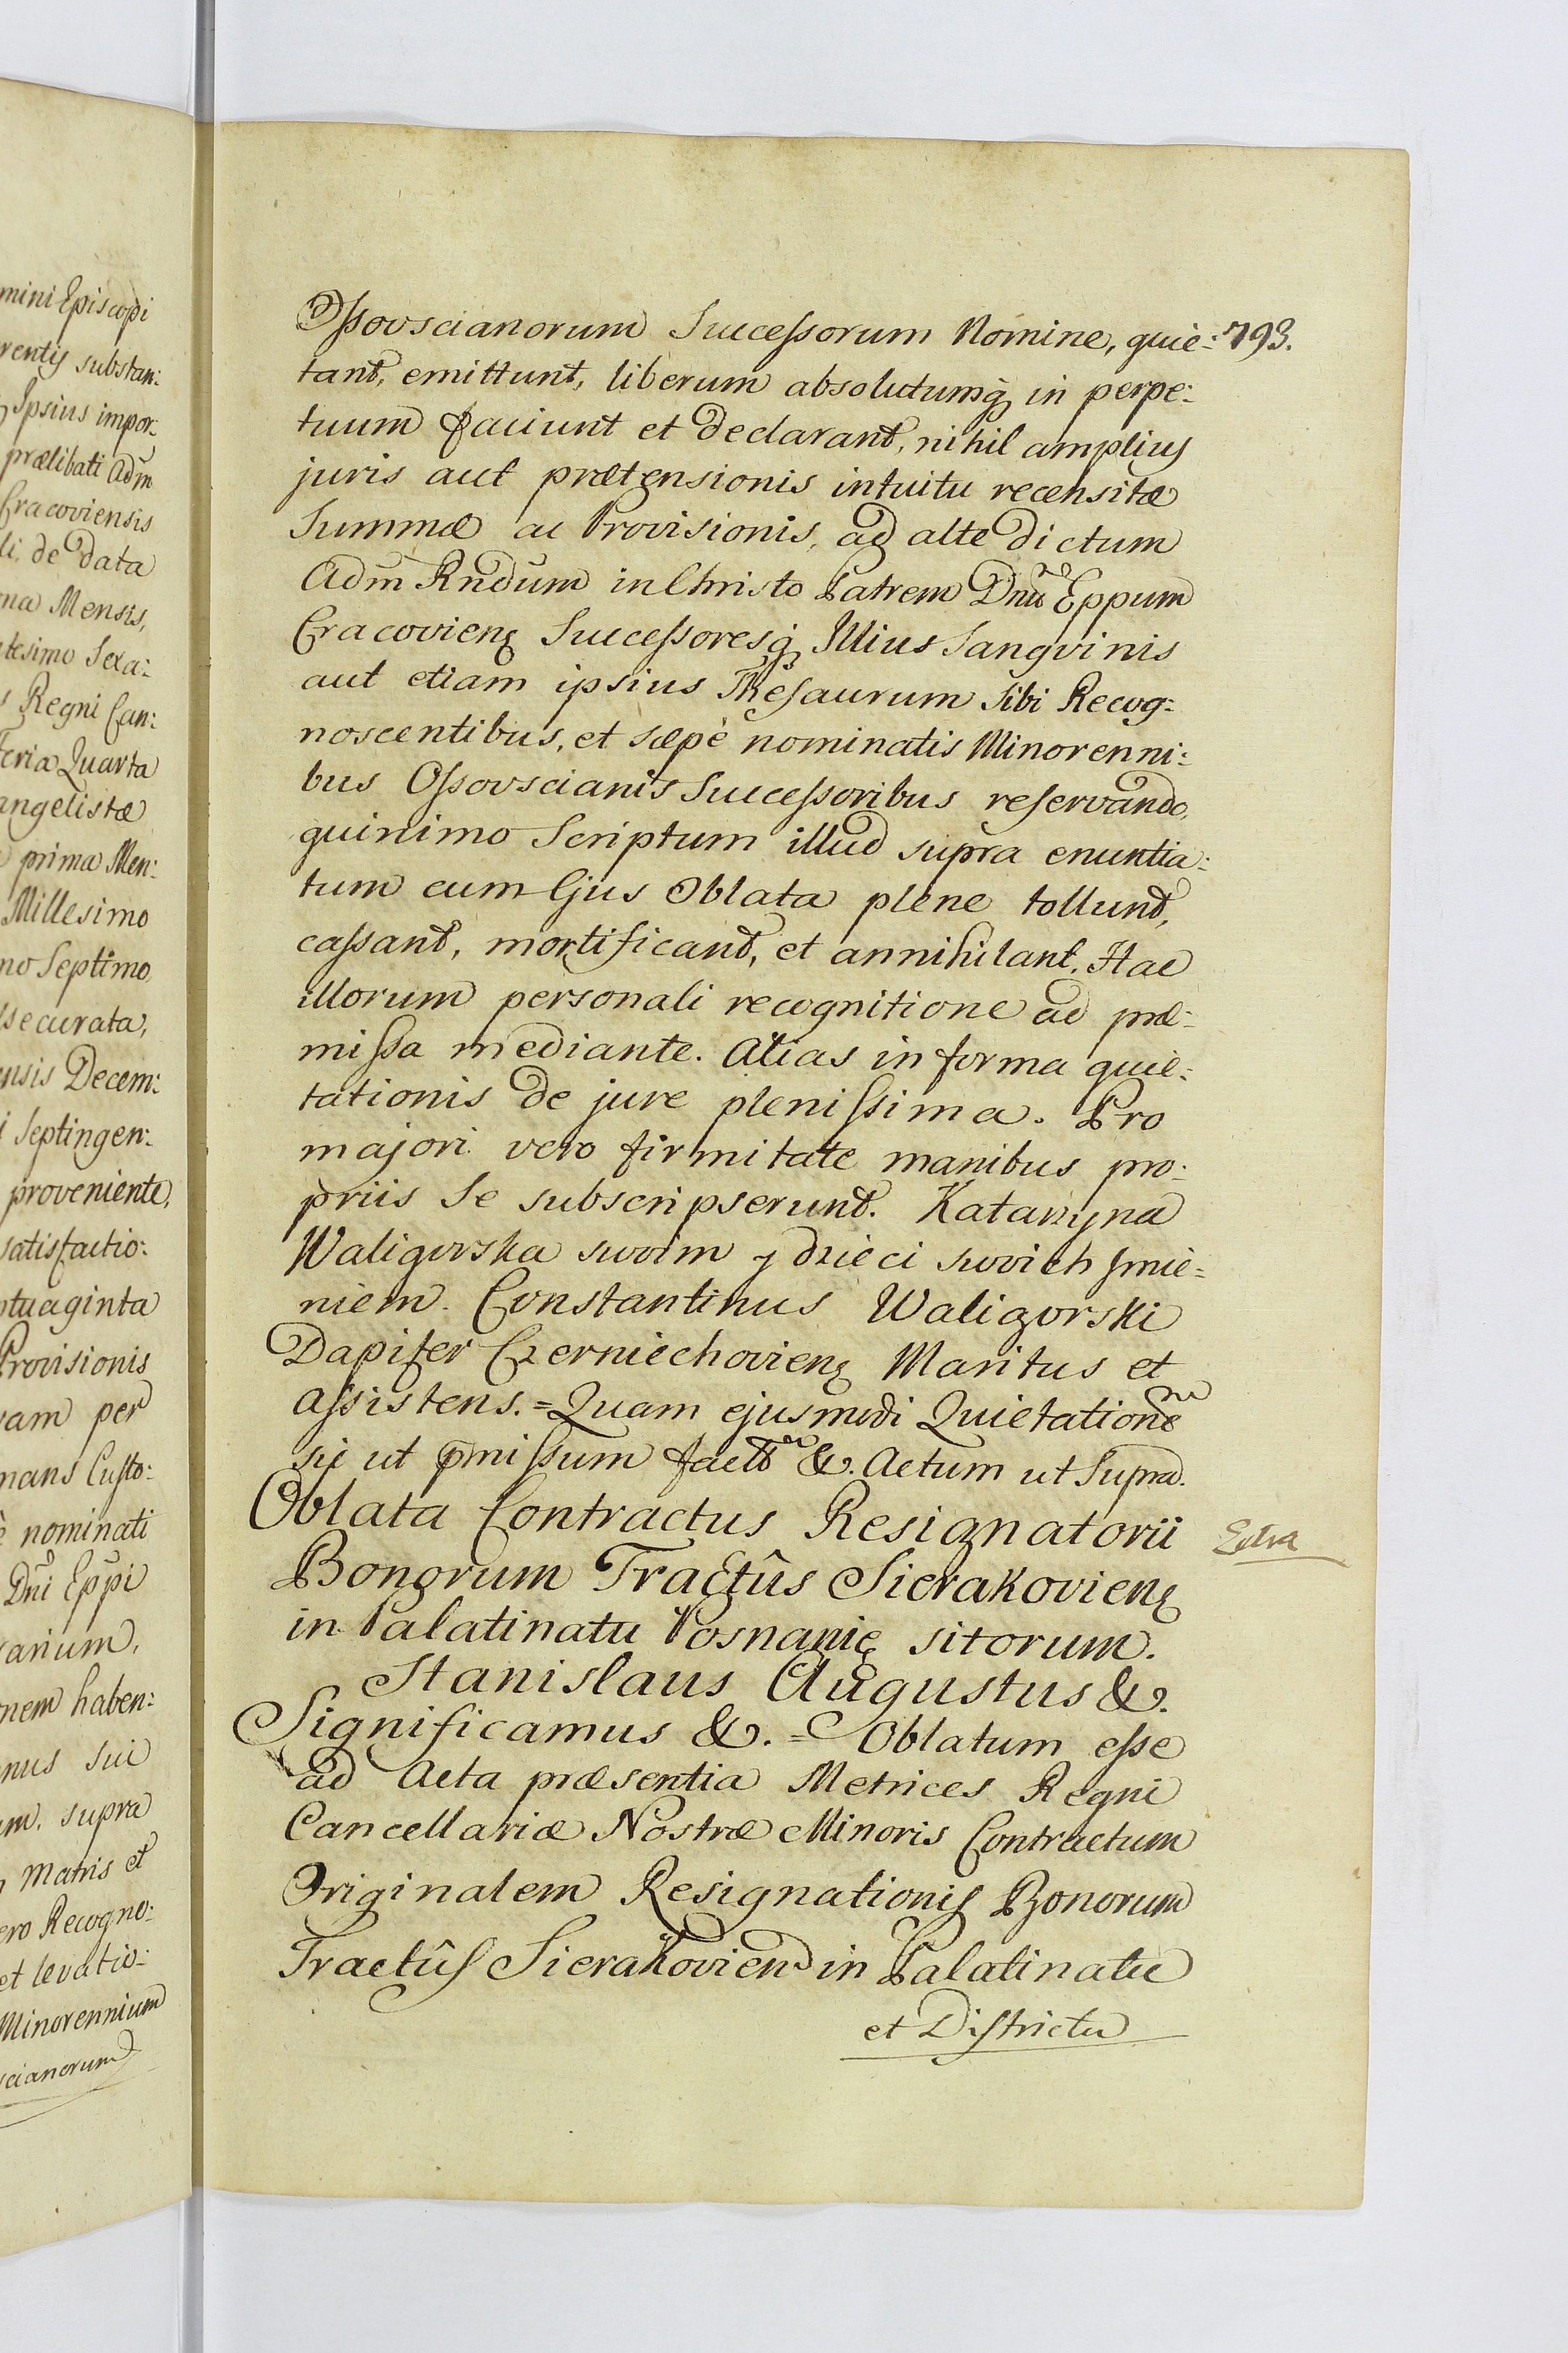 mini Episcopi
rentis substan:
Ipsius impor:
prælibati Adm
Cracoviensis
li, de data
na Mensis,
tesimo Sexa:
Regni Can:
Feria Quarta
angelistæ
prima Men:
Millesimo
no Septimo,
ssecurata,
ensis Decem:
i Septingen:
proveniente,
satisfactio:
ptuaginta
Provisionis
vam per
mans Custo:
è nominati
Dni Eppi
rarium,
nem haben:
nus sui
um, supra
Matris et
ero Recogno:
et levatio:
Minorennium
scianorum
793.
Ossovscianorum Successorum Nomine, quie:
tant, emittunt, liberum absolutumq in perpe:
tuum faciunt et declarant, nihil amplius
juris aut prætensionis intuitu recensitæ
Summæ ac Provisionis, ad alte dictum
Adm Rndum in Christo Patrem Dnum Eppum
Cracovien Successoresq Illius Sangvinis
aut etiam ipsius Thesaurum sibi Recog:
noscentibus, et sæpè nominatis Minorenni:
bus Ossovscianis Successoribus reservando,
quinimo Scriptum illud supra enuntia:
tum cum Ejus Oblata plene tollunt,
cassant, mortificant, et annihilant. Hac
illorum personali recognitione ad præ:
missa mediante. Alias in forma quie:
tationis de jure plenissima. Pro
majori vero firmitate manibus pro:
priis Se subscripserunt. Katarzyna
Waligorska swoim y dzieci swoich Jmie:
niem. Constantinus Waligorski
Dapifer Czerniechovien Maritus et
assistens. = Quam ejusmodi Quietationem
sic ut pmissum facta &. Actum ut Supra.
Oblata Contractus Resignatorii
Extra
Bonorum Tractûs Sierakovien
in Palatinatu Posnanię sitorum.
Stanislaus Augustus &.
Significamus &. = Oblatum esse
ad Acta præsentia Metrices Regni
Cancellariæ Nostræ Minoris Contractum
Originalem Resignationis Bonorum
Tractûs Sierakovien in Palatinatu
et Districtu